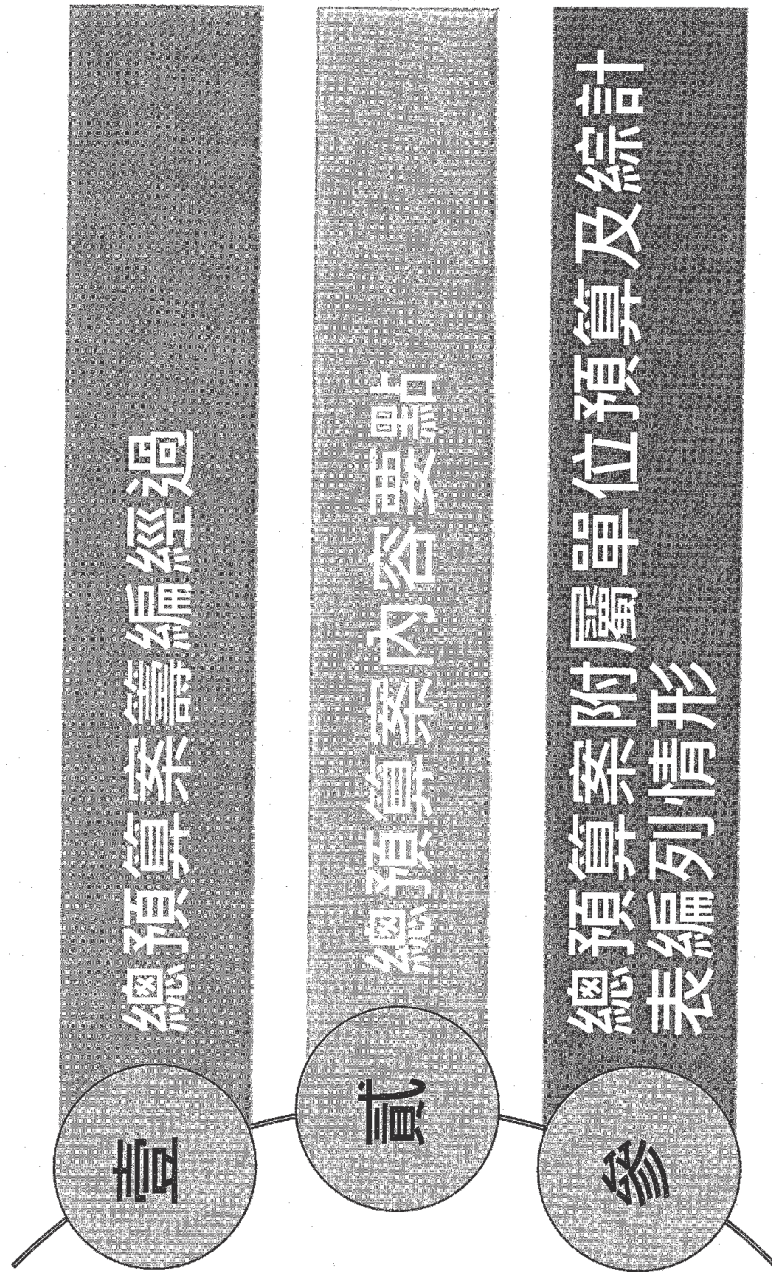 壹
總預算案籌編經過
貳
總預算案內容要點
參
總預算案附屬單位預算及綜計
表編列情形